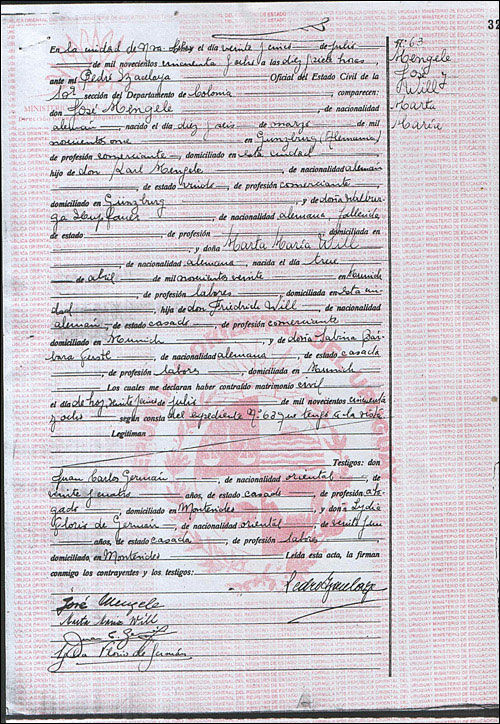 32
En la ciudad de Nva. el día veinte y cinco de Julio
de mil novecientos cincuenta y ocho a las diez y siete horas,
ante mí Pedro Oficial del Estado Civil de la
1a. sección del Departamento de Colonia, comparecen:
don José Mengele, de nacionalidad
alemán, nacido el día diez y seis de marzo de mil
novecientos once en Gunzburg (Alemania)
de profesión comerciante, domiciliado en esta ciudad,
hijo de don Karl Mengele, de nacionalidad alemán
, de estado viudo, de profesión comerciante,
domiciliado en Gunzburg, y de doña Walbur-
ga, de nacionalidad alemana, fallecida
de estado, de profesión, domiciliada en
, y doña Marta María Will
, de nacionalidad alemana, nacida el día
de abril de mil novecientos veinte en Munich
, de profesión labores, domiciliada en esta ciu-
dad, hija de don Friedrich Will, de nacionalidad
alemán, de estado casado, de profesión comerciante
domiciliado en Munich, y de doña Sabina Bár-
bara, de nacionalidad alemana, de estado casada
, de profesión labores, domiciliada en Munich
Los cuales me declaran haber contraído matrimonio civil
el día de hoy, veinte y cinco de Julio de mil novecientos cincuenta
y ocho según consta del expediente N° 63 que tengo a la vista
Legitiman
Testigos: don
Juan Carlos Germán, de nacionalidad oriental, de
veinte y años, de estado casado, de profesión abo-
gado domiciliado en Montevideo, y doña Lydia
Floris de Germán, de nacionalidad oriental de veinte y
años, de estado casada, de profesión labores,
domiciliada, en Montevideo Leída esta acta, la firman
conmigo los contrayentes y los testigos:
José Mengele
Marta María Will
Lydia Floris de Germán
N° 63
Mengele
José y
Will
Marta
María